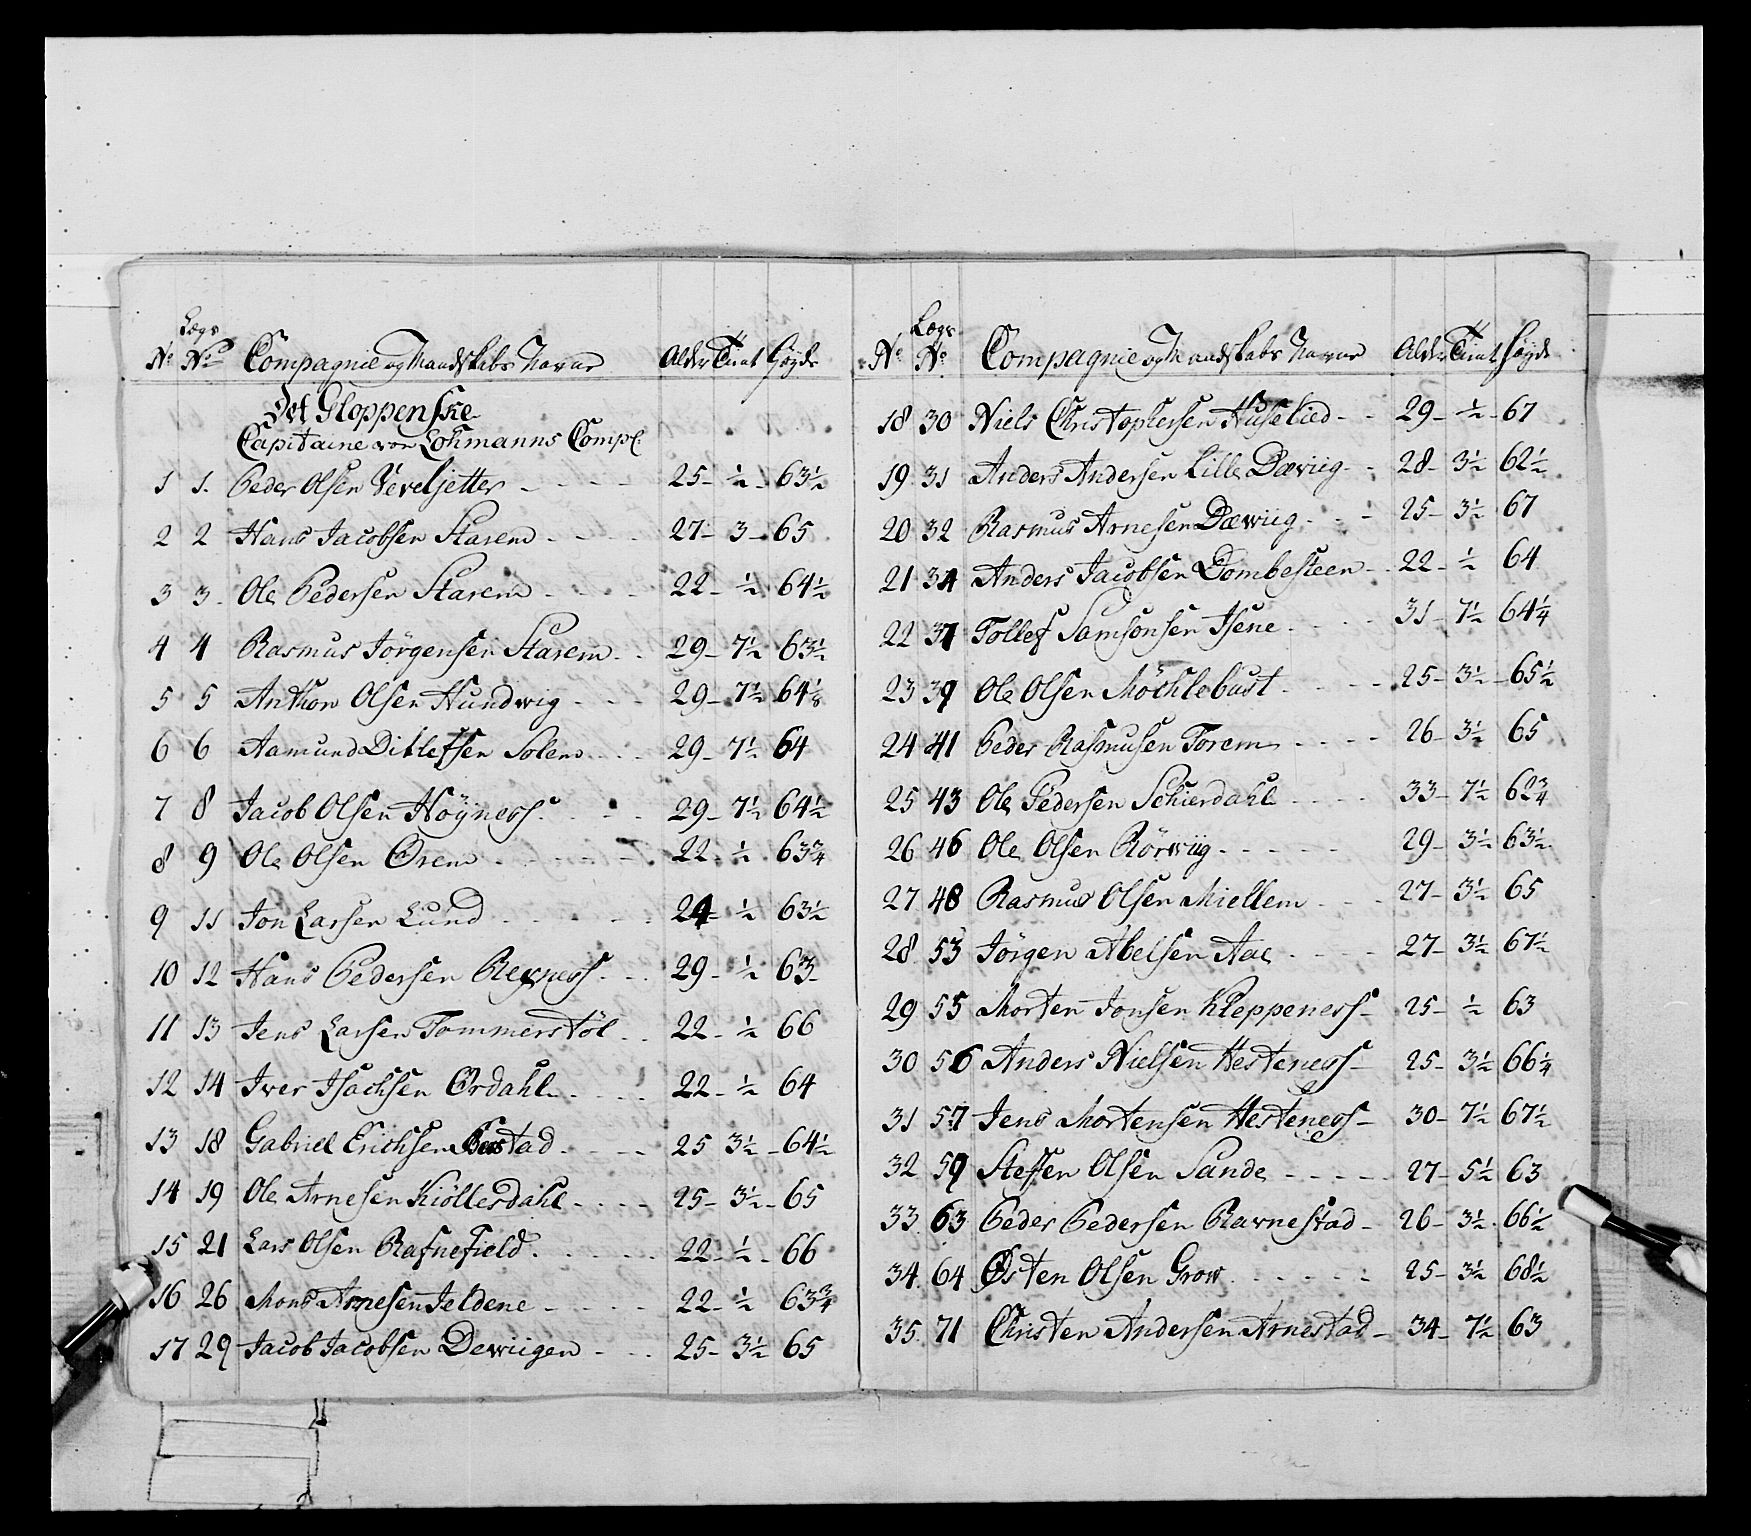 Lægs
No No Compagnie og Mandskabs Navne Alder Tient Høyde
Det Gloppenske
Capitaine von Lohmanns Comp:
1 1. Peder Olsen Neveljetter - - - - 25 - ½ - 63½
2 2 Hans Jacobsen Starem - - - - 27 - 3 - 65
3 3 - Ole Pedersen Starem - - - - 22 - ½ 64½
4 4 Rasmus Jörgensen Starem - - 29 - 7½ 63½
5 5 Anthon Olsen Hundwig - - - 29 - 7½ 64⅛
6 6 Aamund Ditlefsen Solem - - - 29 - 7½ 64
7 8 Jacob Olsen Höÿness - - - 29 - 7½ 64½
8 9 Ole Olsen Ørem - - - - - 22 - ½ 63¾
9 11 Jon Larsen Lund - - - - - 24 - ½ 63½
10 12 Hans Pedersen Rexness - - - 29 - ½ 63 -
11 13 Jens Larsen Tommerstöl - - 22 - ½ 66
12 14 Iver Isachsen Ørdahl - - - - 22 - ½ 64
13 18 Gabriel Erichsen Bustad - - - - 25 3½ - 64½
14 19 Ole Arnesen Kiöllesdahl - - - - 25 - 3½ - 65
15 21 Lars Olsen Rafnefield - - - - - 22 - ½ - 66
16 26 Mons Arnesen Jeldene - - - - 22 - ½ 63¾
17 29 Jacob Jacobsen Dewiigen - - - 25 - 3½ 65
Lægs
No No Compagnie og Mandskabs Navne Alder Tient Høyde
18 30 Niels Christophersen Huselied - - 29 - ½ - 67
19 31 Anders Andersen Lille Dæwiig - - 28 - 3½ 62½
20 32 Rasmus Arnesen Dæwiig - - - 25 - 3½ 67
21 34 Anders Jacobsen Dombesteen - - 22 - ½ 64
22 37 Tollef Samsonsen Isene - - - - 31 - 7½ 64¼
23 39 Ole Olsen Möchlebust - - - - - 25 - 3½ - 65½
24 41 Peder Rasmusen Torem - - - - 26 - 3½ 65
25 43 Ole Pedersen Schierdahl - - - - 33 - 7½ 62¾
26 46 Ole Olsen Rörwiig - - - - - 29 - 3½ 63½
27 48 Rasmus Olsen Miellem - - - 27 - 3½ 65
28 53 Jörgen Abelsen Aae - - - - 27 - 3½ 67½
29 55 Morten Jonsen Kleppeness - 25 - ½ 63
30 56 Anders Nielsen Hesteness - 25 - 3½ 66¼
31 57 Jens Mortensen Hesteness - 30 - 7½ 67½
32 59 Steffen Olsen Sande - - - - - 27 - 5½ 63
33 63 Peder Pedersen Ravnestad - 26 - 3½ 66½
34 64 Østen Olsen Grow - - - - - - 25 - 3½ 68½
35 71 Christen Andersen Arnestad - 34 - 7½ 63